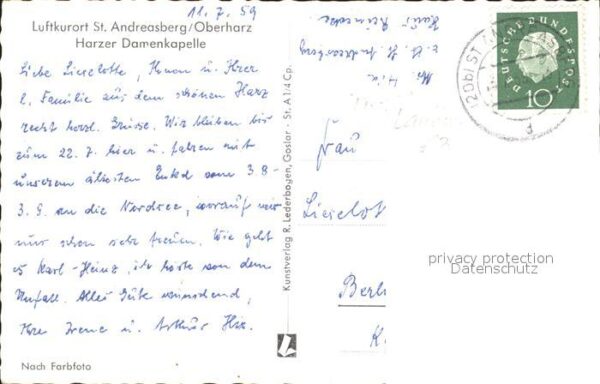 11.7.59
Luftkurort St. Andreasberg/Oberharz
Harzer Damenkapelle
Liebe Lieselotte, Ihnen u. Ihrer
l. Familie aus dem schönen Harz
recht herzl. Grüsse. Wir bleiben bis
zum 22.7. hier u. fahren mit
unserem ältesten Enkel vom 3.8-
3.9. an die Nordsee, worauf wir
uns schon sehr freuen. Wie geht
es Karl-Heinz, ich hörte von dem
Unfall. Alles Gute wünschend,
Ihre Irene u. Arthur
Nach Farbfoto
Kunstverlag R. Lederbogen, Goslar · St. A 14 Cp.
Haus
z. Zt. St. Andreasberg
DEUTSCHE BUNDESPOST
10
(20b) ST. ANDREASB
d
Frau
Lieselot
Berl
privacy protection
Datenschutz